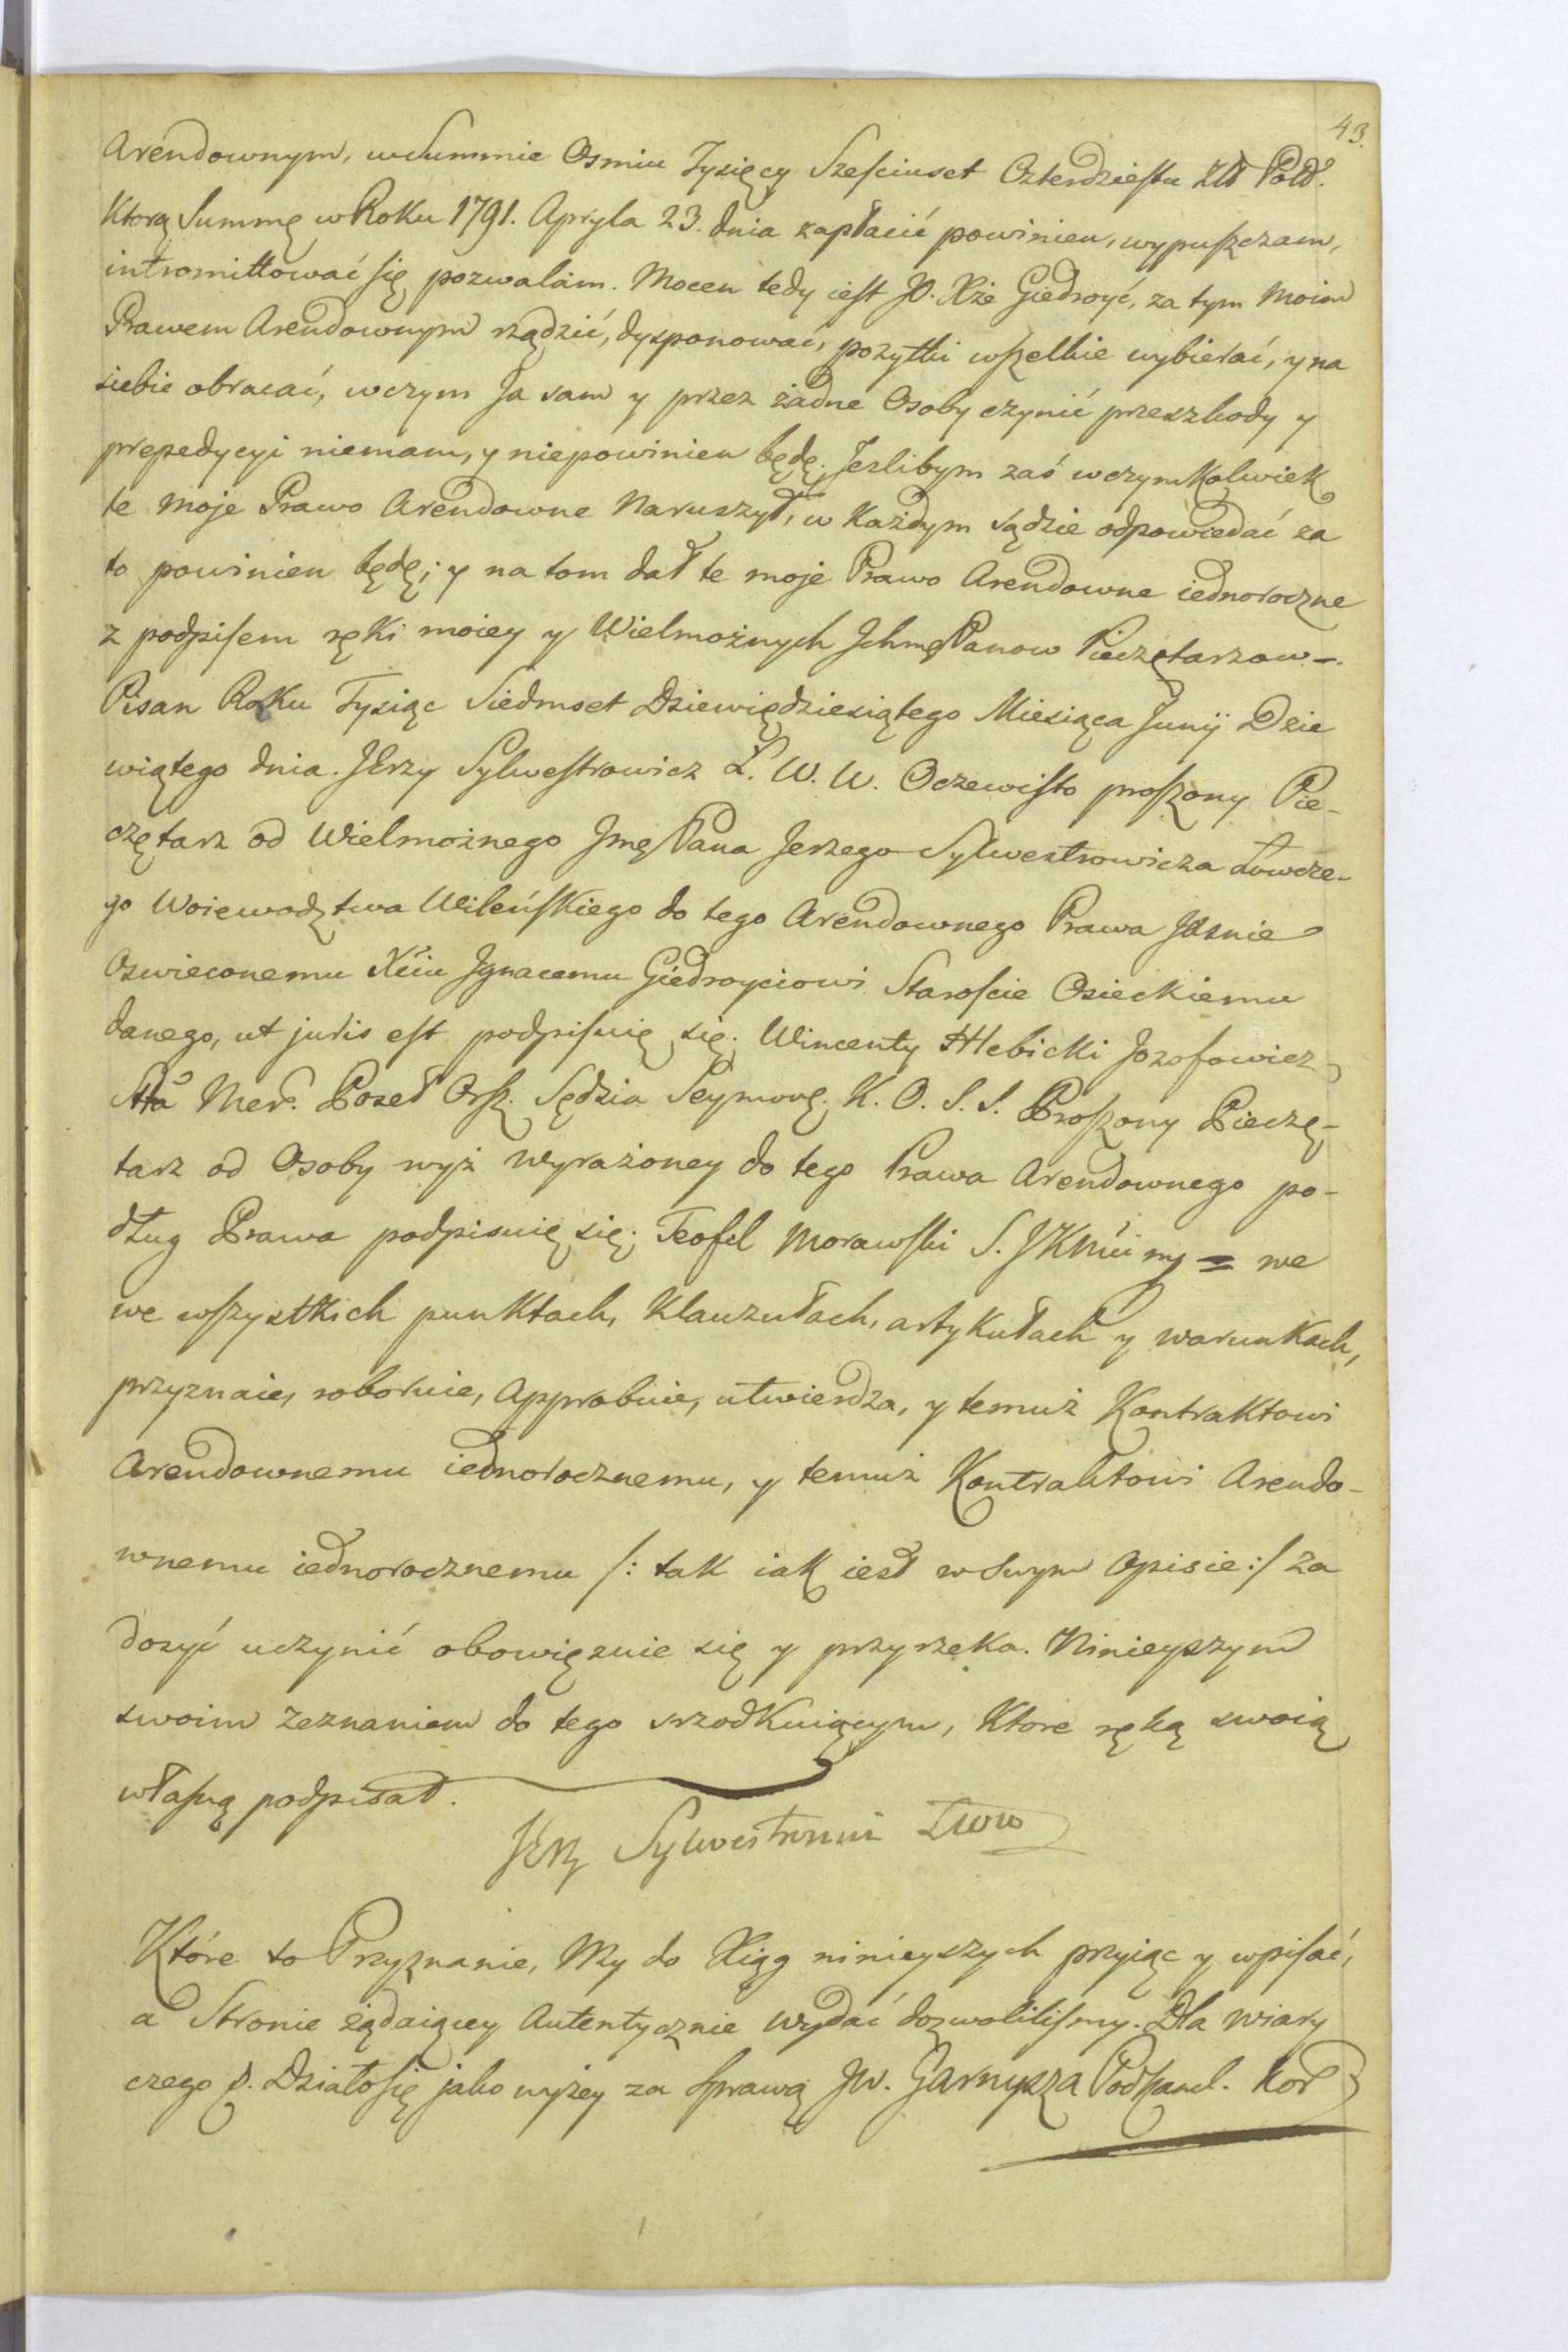 43.
Arendownym, w Summie Osmiu Tysięcy Szesciuset Czterdziestu Złł Pold.
Ktorą Summę w Roku 1791. Apryla 23. dnia zapłacić powinien, wypuszczam,
intromittować się pozwalam. Mocen tedy iest JO. Xże Giedroyć, za tym moim
Prawem Arendownym rządzić, dysponować, pozytki wszelkie wybierać, y na
siebie obracać, w czym Ja sam y przez żadne Osoby czynić przeszkody y
prepedycyi niemam, y niepowinien będę. Jeslibym zaś w czymkolwiek
te moje Prawo Arendowne Naruszył, w Każdym sądzie odpowiedać za
to powinien będę; y na tom dał te moje Prawo Arendowne iednoroczne
z podpisem ręki moiey y Wielmożnych Jchmę Panow Pieczętarzow -.
Pisan Roku Tysiąc Siedmset Dziewiędziesiątego Miesiąca Junij Dzie
wiątego dnia. JErzy Sylwestrowicz Ł. W. W. Oczewisto proszony Pie-
czętarz od Wielmożnego Jmę Pana Jerzego Sylwestrowicza Łowcze-
go Woiewodztwa Wileńskiego do tego Arendownego Prawa JAsnie
Oswieconemu Xciu Jgnacemu Giedroyciowi Staroscie Osieckiemu
danego, ut juris est podpisuię się. Wincenty Hlebicki Jozofowicz
Stta Mer. Poseł Orsz. Sędzia Seymowę. K. O. S. S. Proszony Pieczę-
tarz od Osoby wyż wyrażoney do tego Prawa Arendownego po-
dług Prawa podpisuię się; Teofil Morawski S. JKMci = we
we wszystkich punktach, Klauzułach, artykułach y warunkach,
przyznaie, roboruie, Approbuie, utwierdza, y temuż Kontraktowi
Arendownemu iednorocznemu, y temuż Kontraktowi Arendo-
wnemu iednorocznemu /: tak iak iest w swym Opisie :/ za
dosyć uczynić obowięzuie się y przyrzeka. Ninieyszym
swoim zeznaniem do tego srzodkuiącym, Ktore ręką swoią
własną podpisał.
JErzy Sylwestrowicz Łww
Które to Przyznanie, My do Xiąg ninieyszych przyiąc y wpisać,
a Stronie żądaiącey Autentycznie wydać dozwolilismy. Dla wiary
czego p. Działo się jako wyżey za sprawą JW. Garnysza Podkancl. Kor